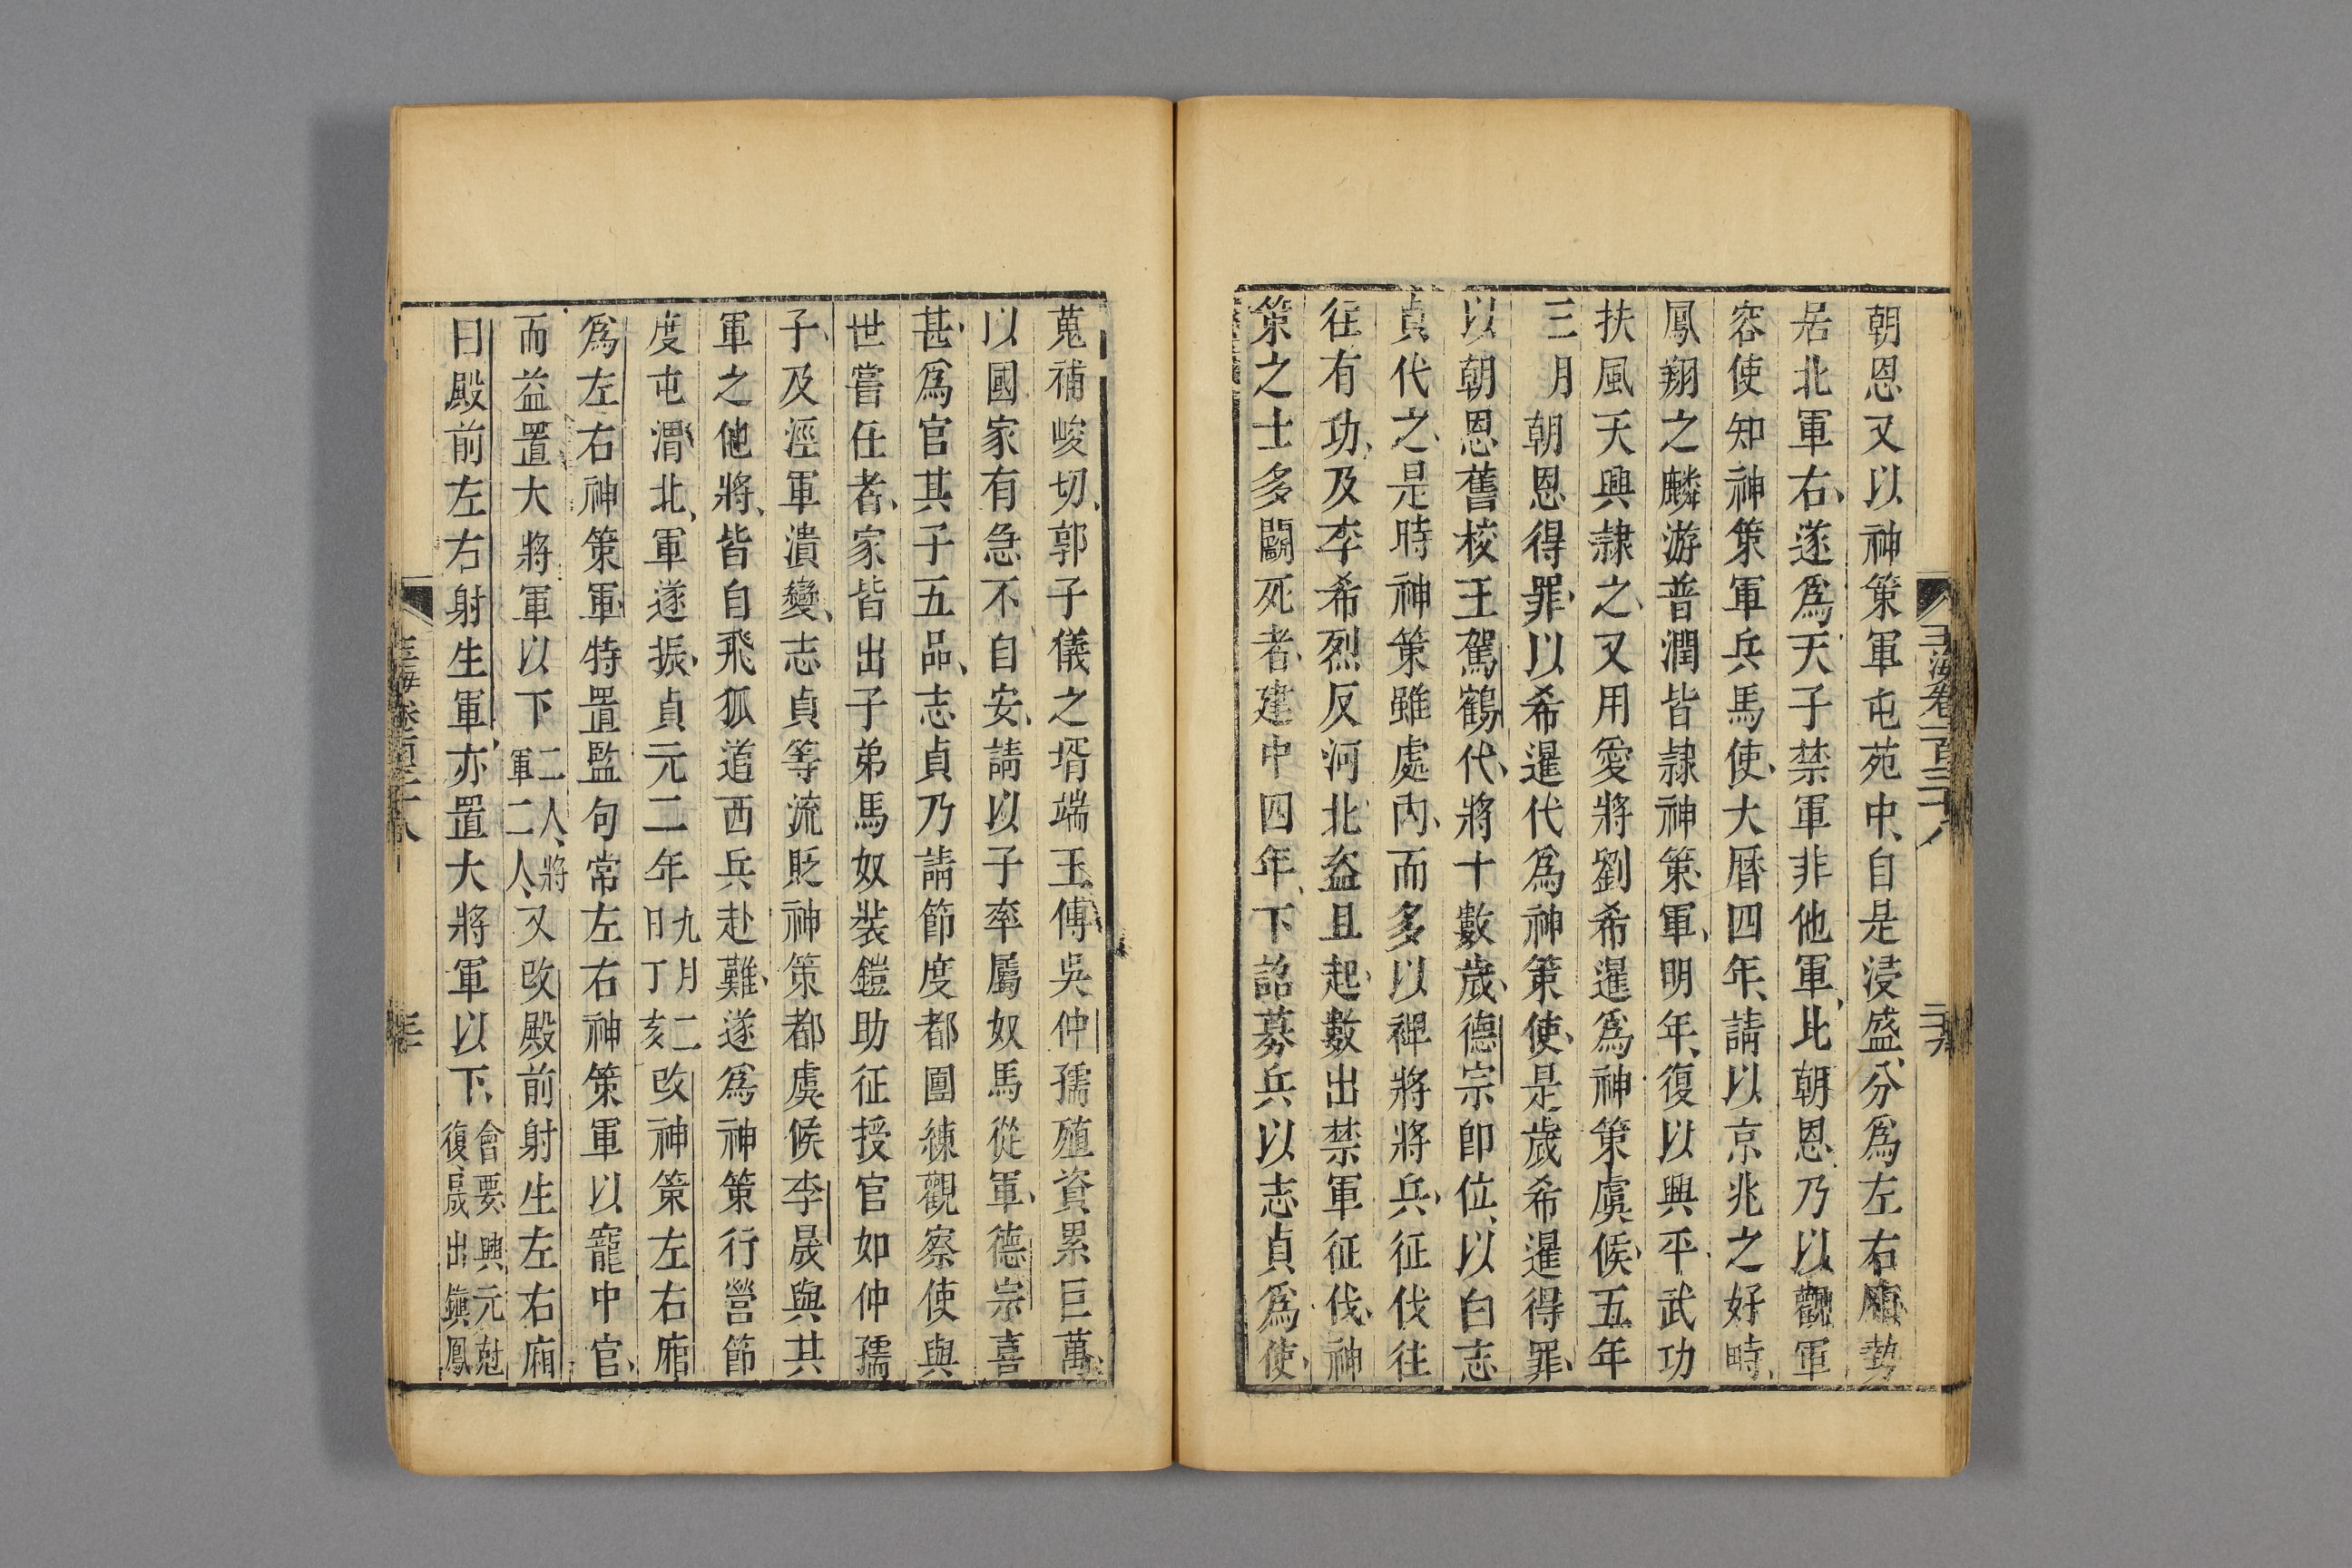 朝恩又以神策軍屯苑中、自是浸盛、分爲左右廂、勢
居北軍右、遂爲天子禁軍非他軍比、朝恩乃以觀軍
容使知神策軍兵馬使、大曆四年、請以京兆之好畤、
鳳翔之麟游普潤皆隷神策軍、明年、復以興平、武功
扶風天興隷之、又用愛將劉希暹爲神策虞候、五年
三月朝恩得罪、以希暹代爲神策使、是歲希暹得罪、
以朝恩舊校王駕鶴代、將十數歲、德宗卽位、以白志
貞代之、是時神策雖處內、而多以裨將將兵、征伐往
往有功、及李希烈反河北盗且起、數出禁軍征伐、神
策之士多鬭死者、建中四年、下詔募兵以志貞爲使、
玉海卷一百三十八
蒐補峻切、郭子儀之壻端王傅吳仲孺殖資累巨萬、
以國家有急不自安、請以子率屬奴馬從軍、德宗喜
甚、爲官其子五品、志貞乃請節度都團練觀察使與
世嘗任者、家皆出子弟馬奴裝鎧助征授官如仲孺
子、及涇軍潰變、志貞等流貶神策都虞候李晟與其
軍之他將、皆自飛狐道西兵赴難、遂爲神策行營節
度屯渭北、軍遂振、貞元二年九月二日丁亥改神策左右廂
爲左右神策軍、特置監句常左右神策軍以寵中官、
而益置大將軍以下二人、將軍二人、又改殿前射生左右廂
曰殿前左右射生軍、亦置大將軍以下、會要興元尅復、晟出鎭鳳
玉海卷一百三十八